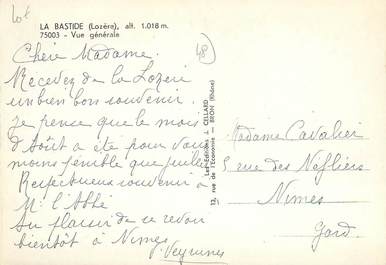 LA BASTIDE (Lozère), alt. 1.018 m.
75003 - Vue générale
48
Chère Madame.
Recevez de la Lozère
un bien bon souvenir.
Je pense que le mois
d'Août a été pour vous
moins pénible que juillet
Respectueux souvenir à
Mr l'Abbé
Au plaisir de se revoir
bientôt à Nimes
Veyrunes
Les Editions J. CELLARD
12, rue de l'Economie - BRON (Rhône)
Madame Cavalier
5 rue des Néfliers
Nimes
Gard.